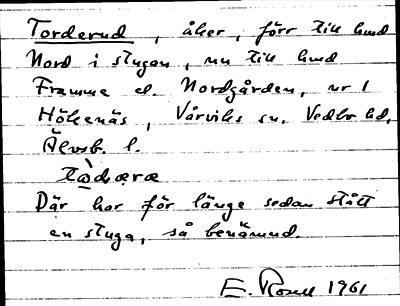 Torderud, åker, förr till hmd
Nord i stugan, nu till hmd
Framme el. Nordgården, nr 1
Hökenäs, Vårviks sn. Vedbo hd,
Älvsb. l.
Där har för länge sedan stått
en stuga, så benämnd.
E. 1961